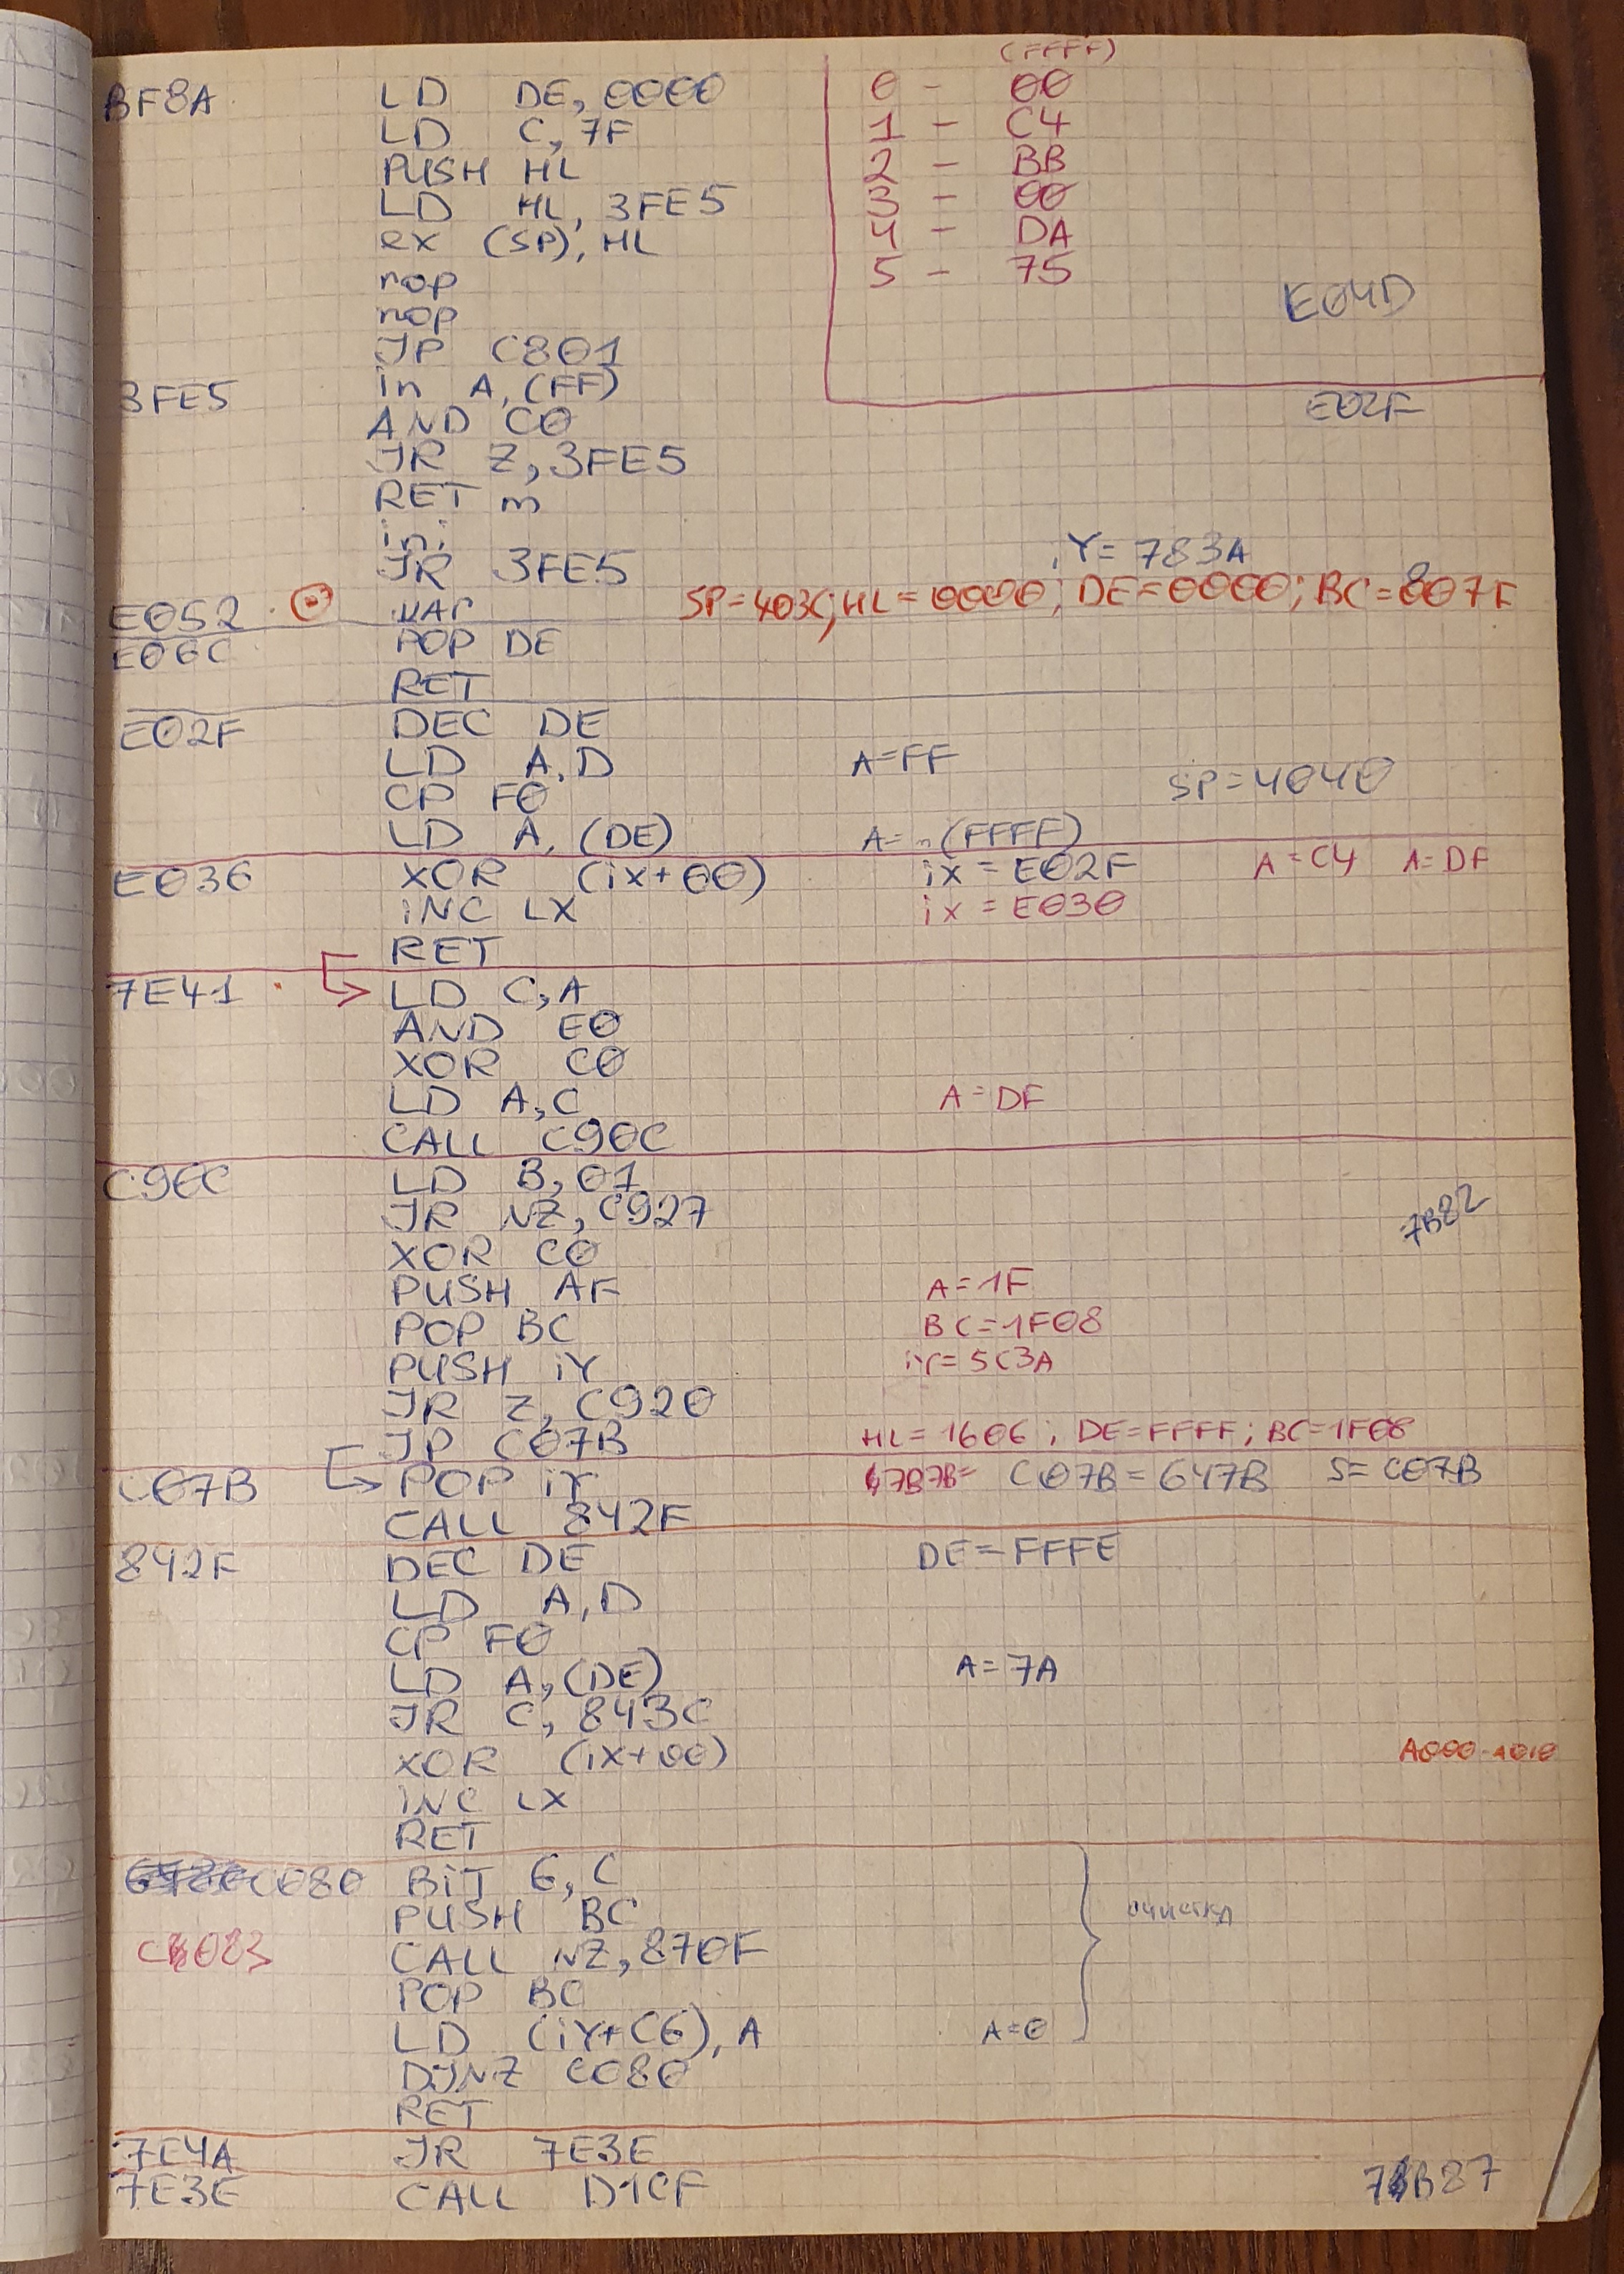 (FFFF)
BF8A LD DE, 0000 0 - 00
LD C, 7F 1 - C4
PUSH HL 2 - BB
LD HL, 3FE5 3 - 00
ex (SP), HL 4 - DA
nop 5 - 75
nop E04D
JP C801
3FE5 in A, (FF)
AND C0 E02F
JR Z, 3FE5
RET m
ini
JR 3FE5 iY= 783A
E052 SP=403C; HL=0000; DE=0000; BC=807F
E06C POP DE
RET
E02F DEC DE
LD A, D A=FF
CP F0 SP=4040
LD A, (DE) A= (FFFF)
E036 XOR (ix+00) ix = E02F A=C4 A=DF
iNC LX ix = E030
RET
7E41 LD C, A
AND E0
XOR C0
LD A, C A=DF
CALL C90C
C90C LD B, 01
JR NZ, C927 7B82
XOR C0
PUSH AF A=1F
POP BC BC=1F08
PUSH iY iY=5C3A
JR Z, C920
JP C07B HL=1606; DE=FFFF; BC=1F08
C07B POP iY C07B=647B S=C07B
CALL 842F
842F DEC DE DE=FFFE
LD A, D
CP F0
LD A, (DE) A=7A
JR C, 843C
XOR (ix+00) A000-1010
iNC LX
RET
C080 BiT 6, C
PUSH BC очистка
C083 CALL NZ, 870F
POP BC
LD (iY+C6), A A=0
DJNZ C080
RET
7E4A JR 7E3E
7E3E CALL D1CF 7B87